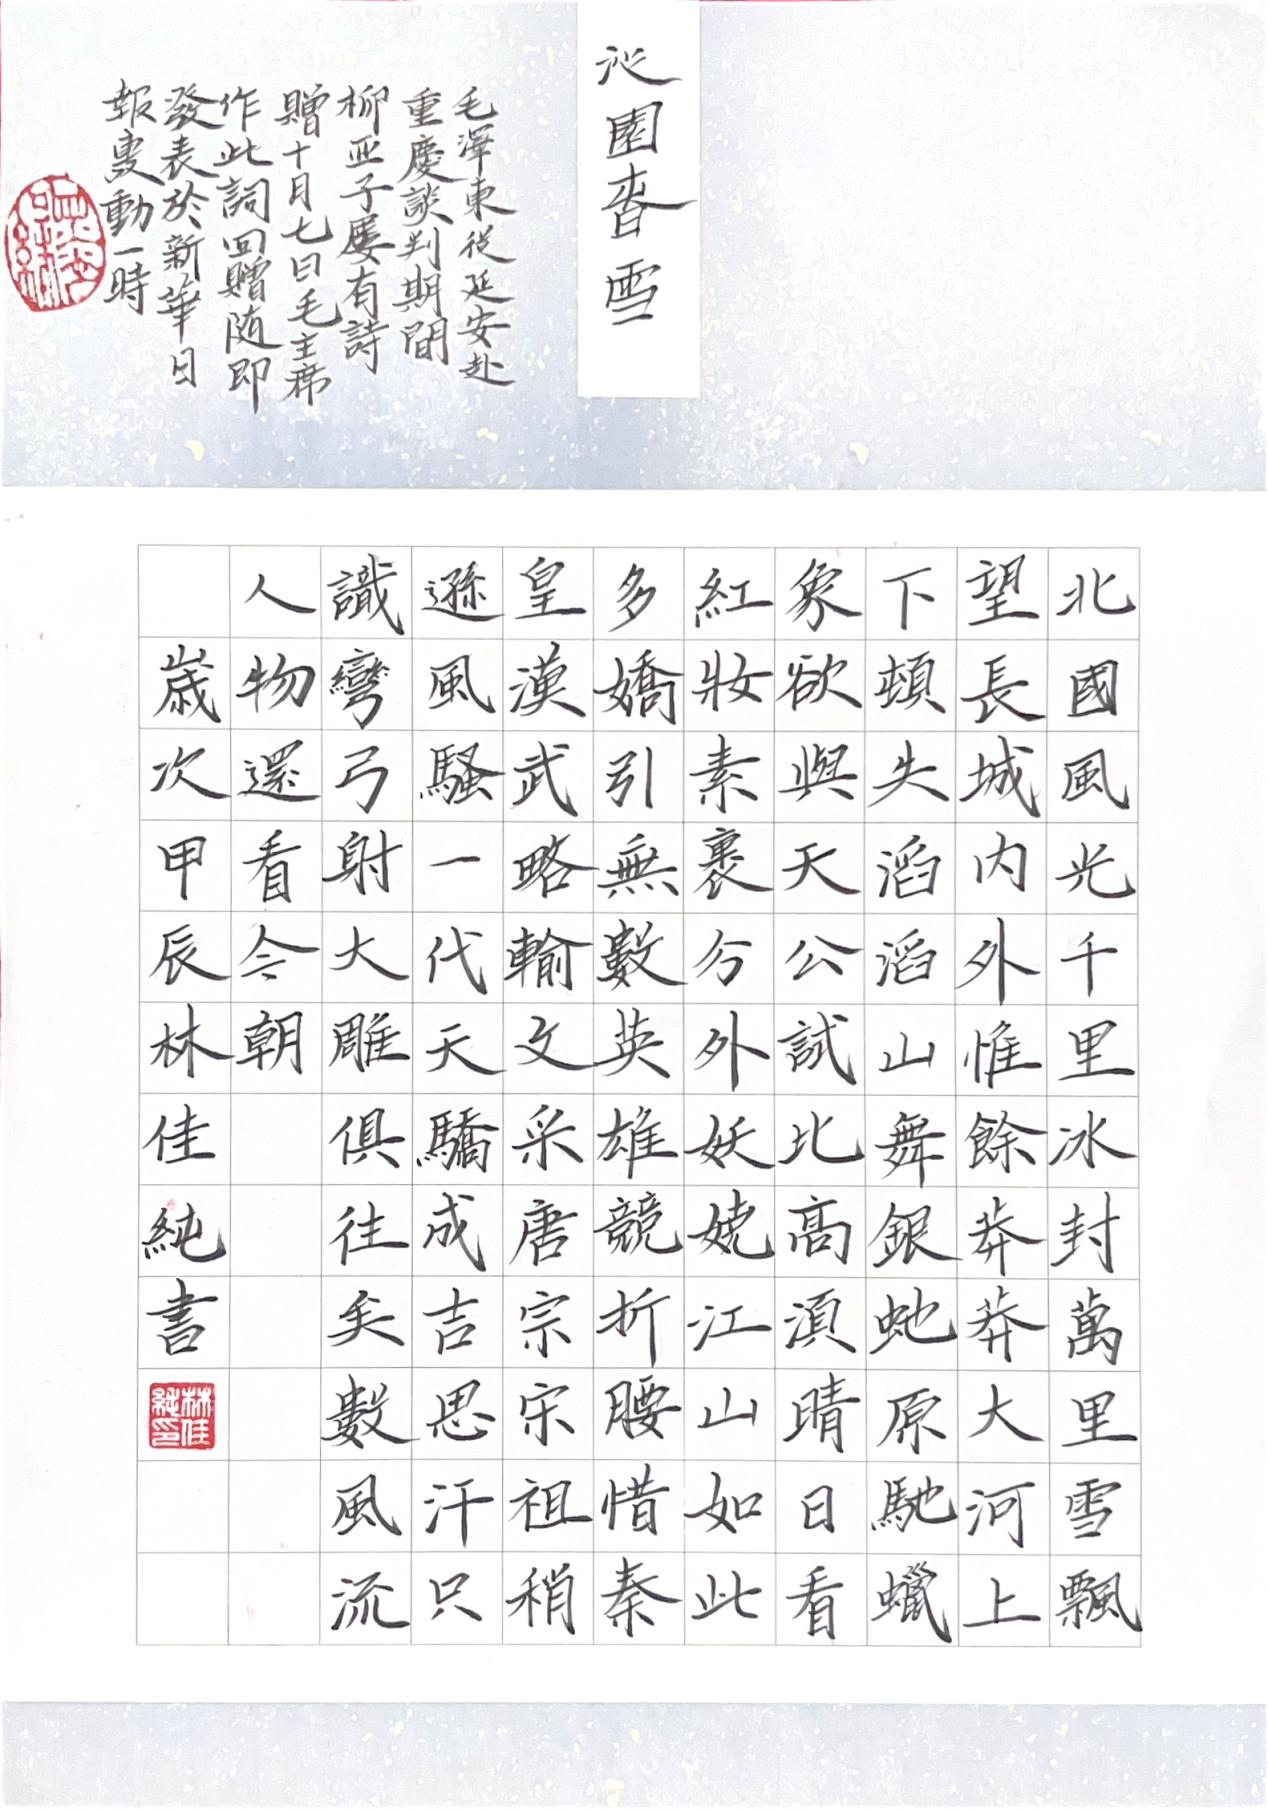 沁園春雪
毛澤東從延安赴
重慶談判期間
柳亞子屢有詩
贈十月七日毛主席
作此詞回贈随即
發表於新華日
報動一時
北國風光千里冰封萬里雪飄
望長城内外惟餘莽莽大河上
下頓失滔滔山舞銀蛇原馳蠟
象欲與天公試比高須晴日看
紅妝素裹分外妖嬈江山如此
多嬌引無數英雄競折腰惜秦
皇漢武略輸文采唐宗宋祖稍
遜風騷一代天驕成吉思汗只
識彎弓射大雕俱往矣數風流
人物還看今朝
歲次甲辰林佳純書
林佳純印